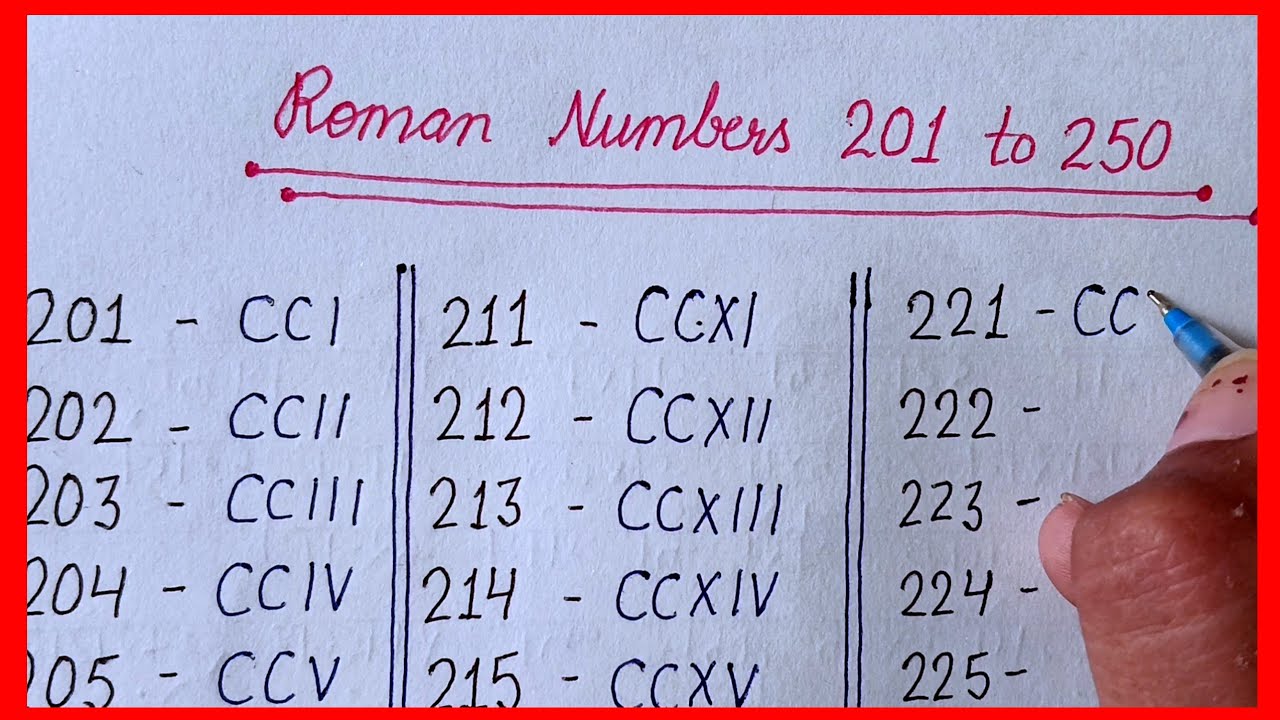 Roman Numbers 201 to 250
201 - CCI
202 - CCII
203 - CCIII
204 - CCIV
205 - CCV
211 - CCXI
212 - CCXII
213 - CCXIII
214 - CCXIV
215 - CCXV
221 - CC
222 -
223 -
224 -
225 -